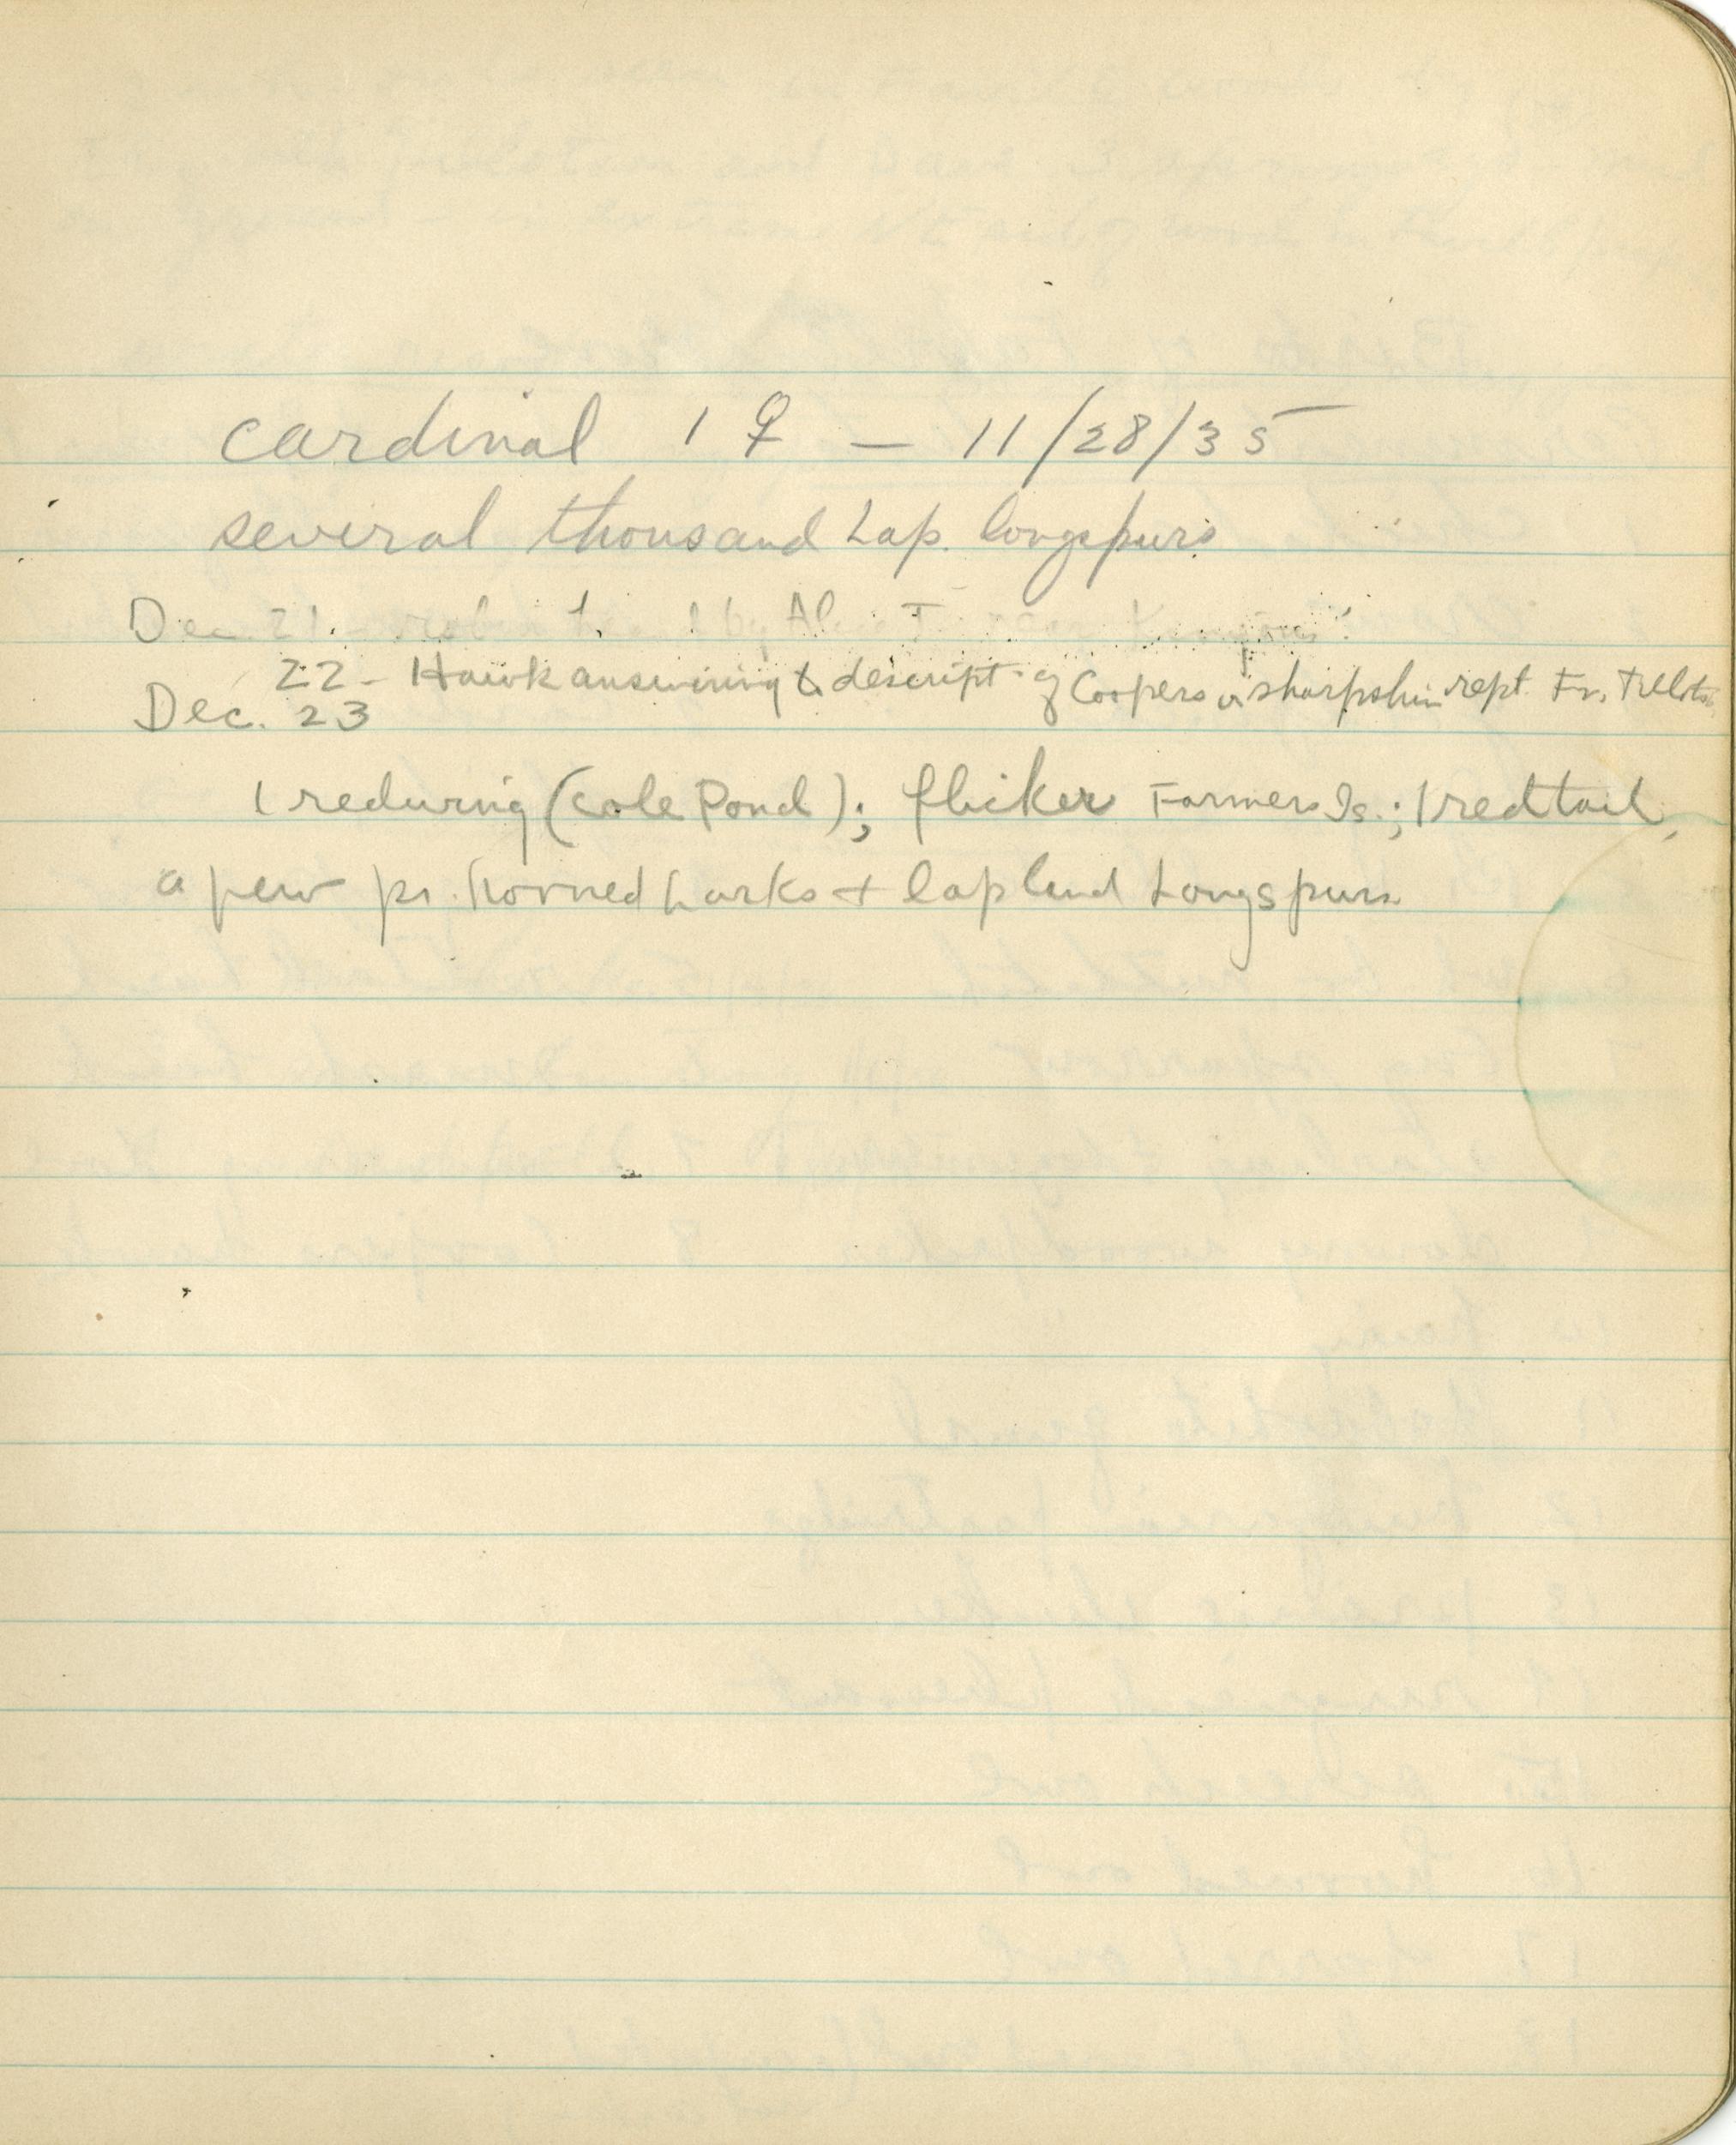 cardinal 1 ♀ — 11/28/35
several thousand Lap. longspurs
Dec. 21 - robin by
22 - Hawk answering to descript. of Coopers or sharpshin rept. Fr.
Dec. 23
1 redwing (Cole Pond); flicker Farmers Is.; 1 redtail,
a few pr. horned Larks + lapland Longspurs